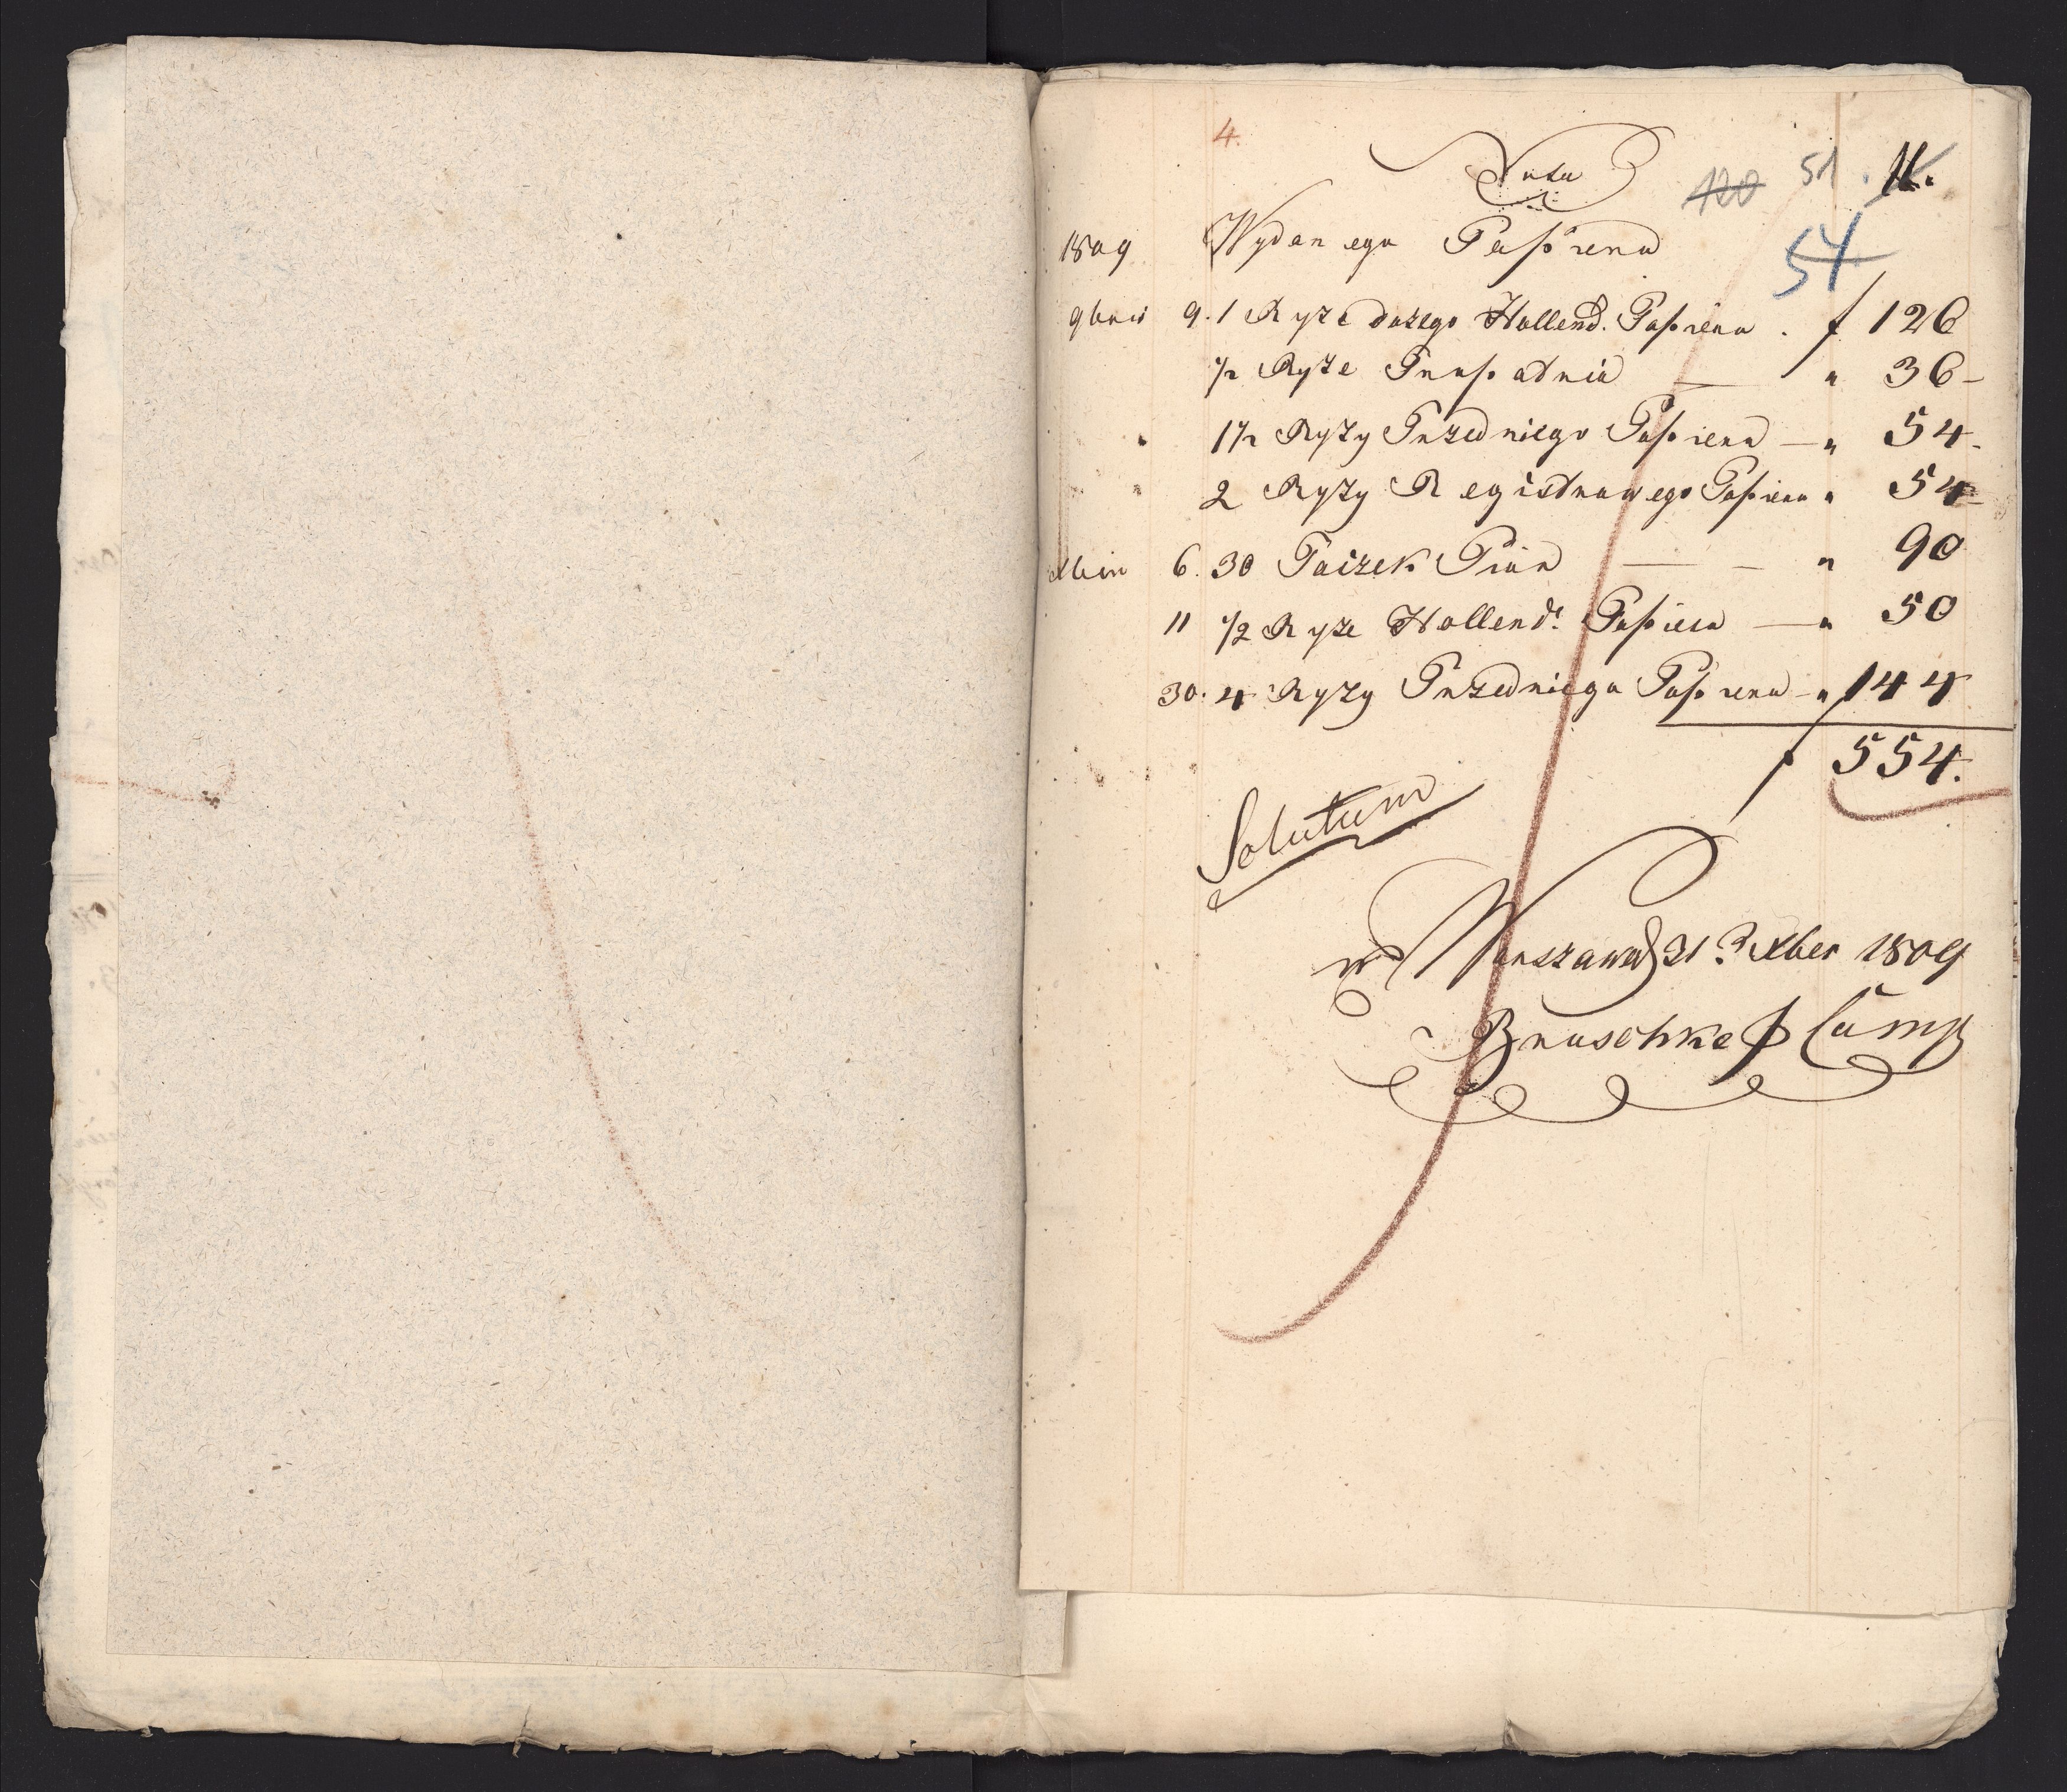 4.
Nota
120 51. 11.
54
1809 Wydanego Papieru
9bris 9. 1 Ryze dużego Hollend. Papieru . f 126
1/2 Ryze " 36-
1 1/2 Ryzy Przedniego Papieru — " 54-
2 Ryzy Registrowego Papieru " 54-
Xbris 6. 30 Paczek Piór — — " 90
11 1/2 Ryze Hollend: Papieru — " 50
30. 4 Ryzy Przedniego Papieru - " 144
f 554.
Solutum
w Warszawie 31. Xber 1809
Bruschke & Comp